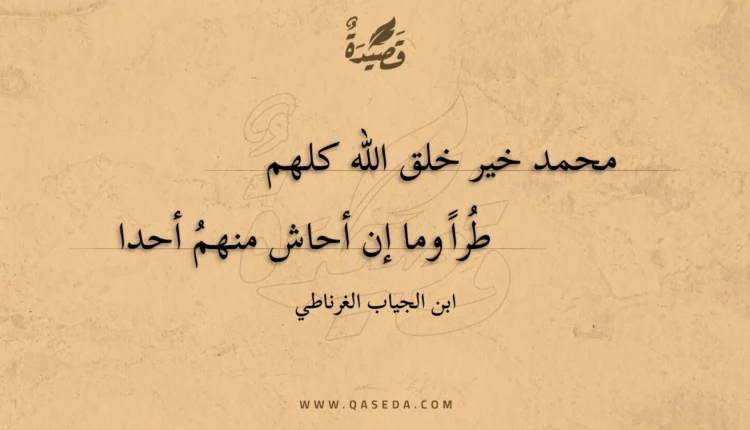 قَصِيدَةٌ
محمد خير خلق الله كلهم
طُراً وما إن أحاش منهمُ أحدا
ابن الجياب الغرناطي
WWW.QASEDA.COM